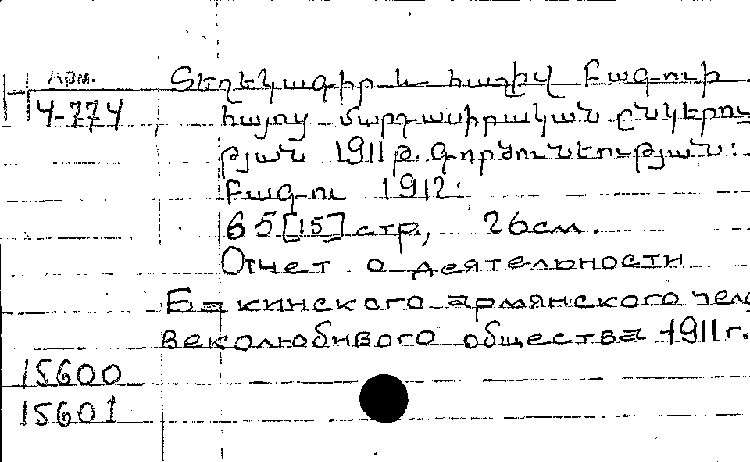 Арм.
4-774
Տեղեկագիր և հաշիվ Բագուի
հայոց մարդասիրական ընկերու
թյան 1911 թ. գործունեության:
Բագու 1912:
65 [15] стр, 26см.
Отчет о деятельности
Бакинского армянского чело
веколюбивого общества 1911 г.
15600
15601